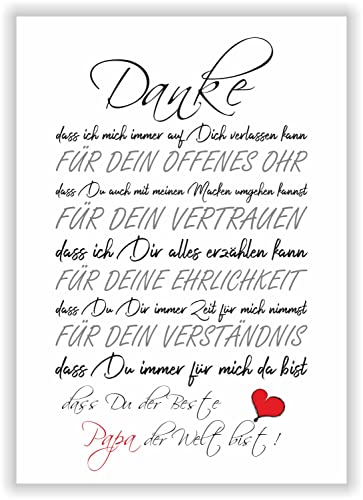 Danke
dass ich mich immer auf Dich verlassen kann
FÜR DEIN OFFENES OHR
dass Du auch mit meinen Macken umgehen kannst
FÜR DEIN VERTRAUEN
dass ich Dir alles erzählen kann
FÜR DEINE EHRLICHKEIT
dass Du Dir immer Zeit für mich nimmst
FÜR DEIN VERSTÄNDNIS
dass Du immer für mich da bist
dass Du der Beste
Papa der Welt bist!